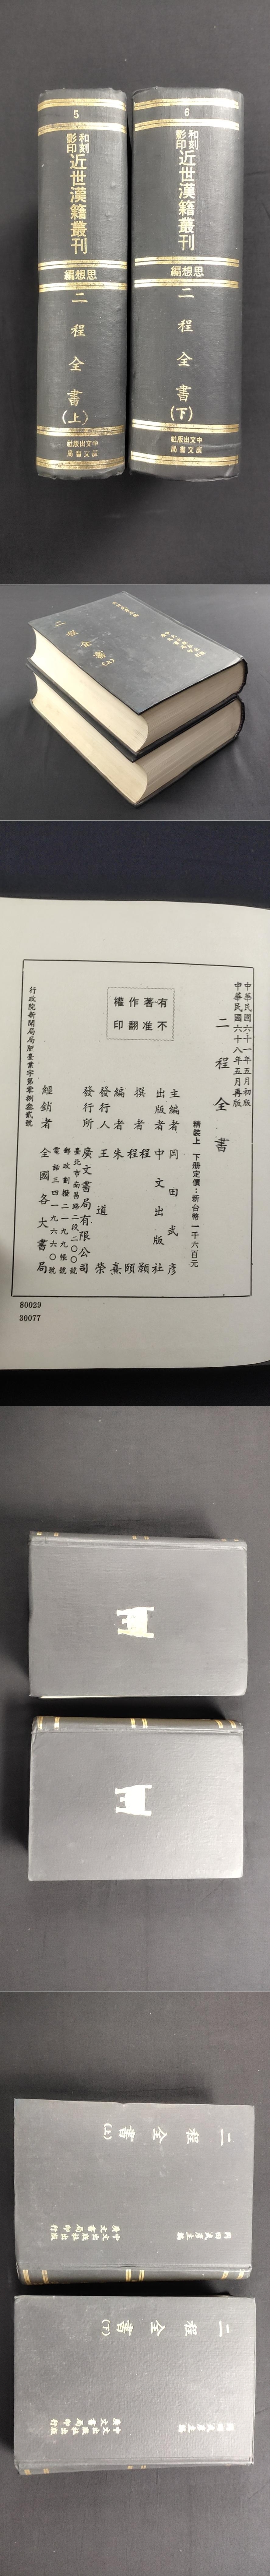 5
和刻
影印
近世漢籍叢刊
思想編
二程全書
(上)
中文出版社
廣文書局
6
和刻
影印
近世漢籍叢刊
思想編
二程全書
(下)
中文出版社
廣文書局
中華民國六十一年五月初版
中華民國六十八年五月再版
二程全書
精裝上 下冊定價：新台幣一千六百元
主編者 岡田武彥
出版者 中文出版社
撰者 程顥
程頤
編者 朱熹
發行人 王道榮
發行所 廣文書局有限公司
臺北市南昌路二段二〇〇號
郵政劃撥二一九九帳號
電話三四一九六六〇號
經銷者 全國各大書局
行政院新聞局局版臺業字第零捌叁貳號
有著作權
不准翻印
80029
30077
岡田武彥主編
二程全書
(上)
中文出版社出版
廣文書局印行
岡田武彥主編
二程全書
(下)
中文出版社出版
廣文書局印行